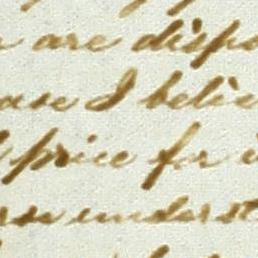 are dispo
ase I believe
price for
understa